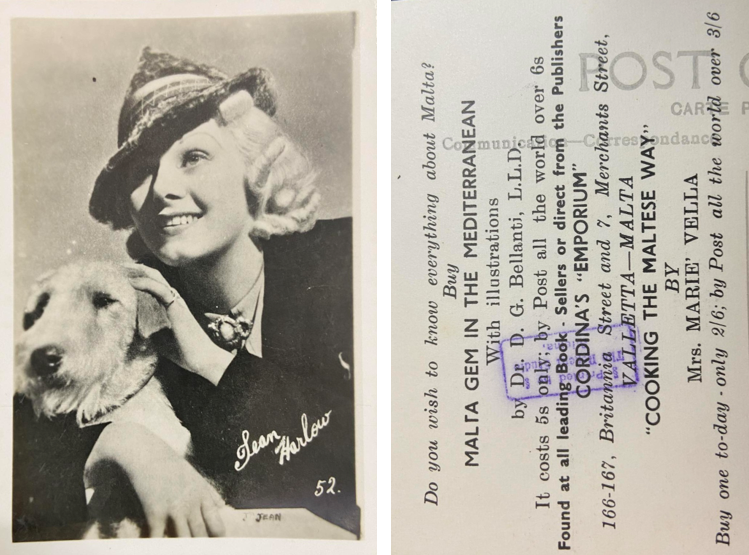 Jean
Harlow
52.
JEAN
POST
CARTE P
Communication—Correspondance
Do you wish to know everything about Malta?
Buy
MALTA GEM IN THE MEDITERRANEAN
With illustrations
by Dr. D. G. Bellanti, L.L.D.
It costs 5s only; by Post all the world over 6s
Found at all leading Book - Sellers or direct from the Publishers
CORDINA'S "EMPORIUM"
166-167, Britannia Street and 7, Merchants Street,
VALLETTA—MALTA
"COOKING THE MALTESE WAY"
BY
Mrs. MARIE' VELLA
Buy one to-day - only 2/6; by Post all the world over 3/6